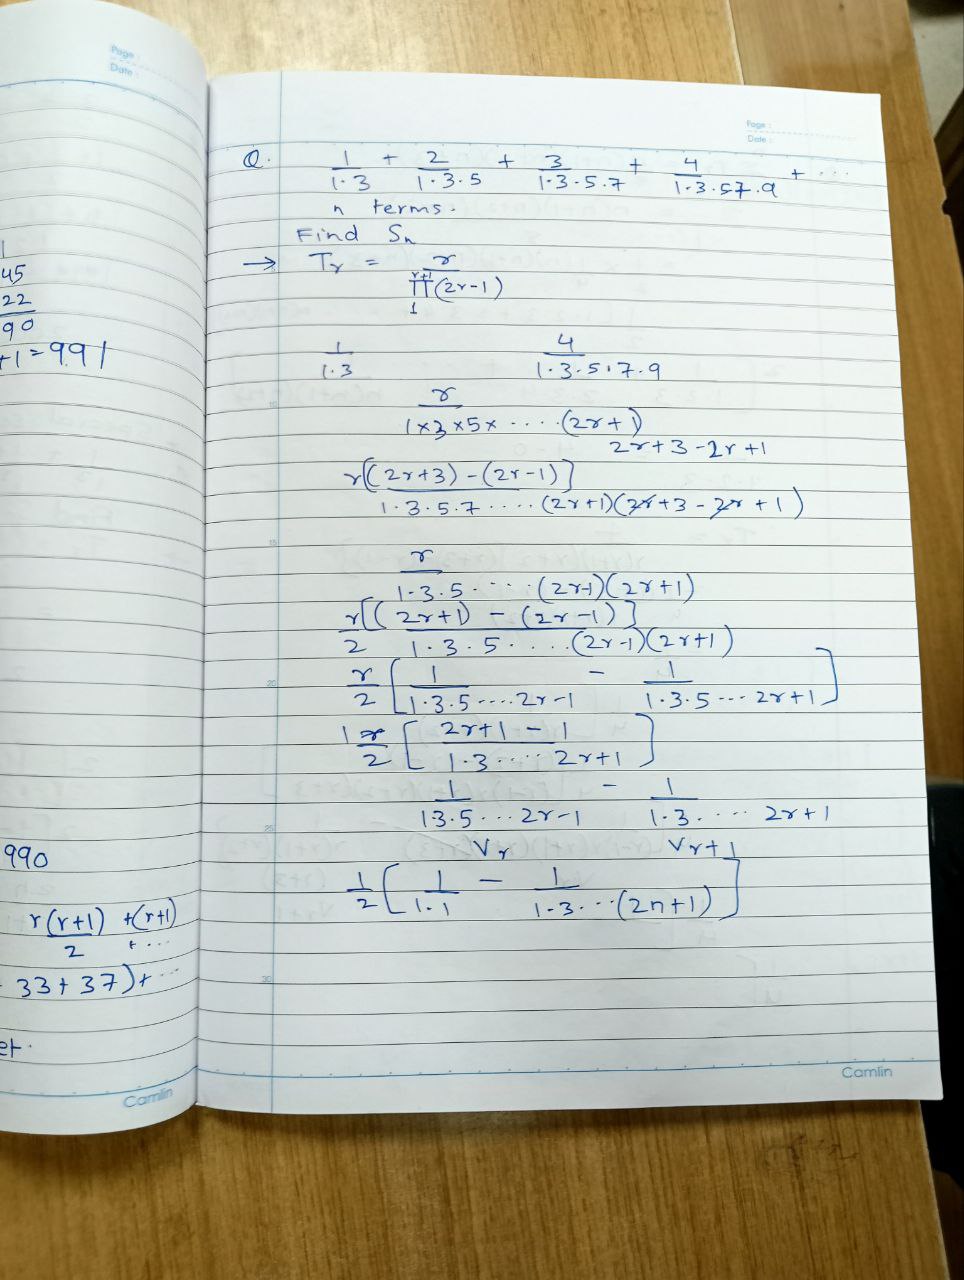 Page :
Date :
1
45
22
90
+1=991
990
r(r+1) +(r+1)
2 + ...
33+37)+ ...
et.
Camlin
Page :
Date :
Q. 1/1·3 + 2/1·3·5 + 3/1·3·5·7 + 4/1·3·57·9 + ...
n terms.
Find Sn
→ Tr = r/∏(2r-1)
r+1
1
1/1·3 4/1·3·5·7·9
r/1×3×5×....(2r+1)
2r+3-2r+1
r[(2r+3)-(2r-1)]
1·3·5·7....(2r+1)(2r+3-2r+1)
r
1·3·5....(2r-1)(2r+1)
r[(2r+1) - (2r-1)]
2 1·3·5....(2r-1)(2r+1)
r/2 [1/1·3·5....2r-1 - 1/1·3·5...2r+1]
1r/2 [2r+1-1/1·3....2r+1]
1/13·5...2r-1 - 1/1·3.... 2r+1
Vr Vr+1
1/2 [1/1·1 - 1/1·3...(2n+1)]
Camlin